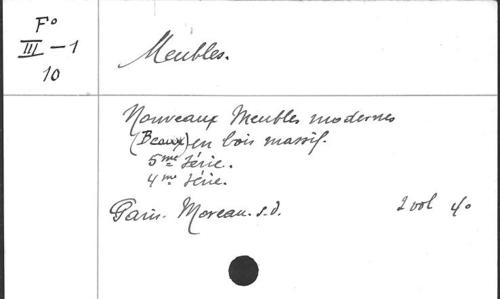 Fº
III - 1
10
Meubles.
Nouveaux Meubles modernes
(Beaux) en bois massif.
5me Série.
4me Série.
Paris. Moreau. s.d.
2 vol 4º